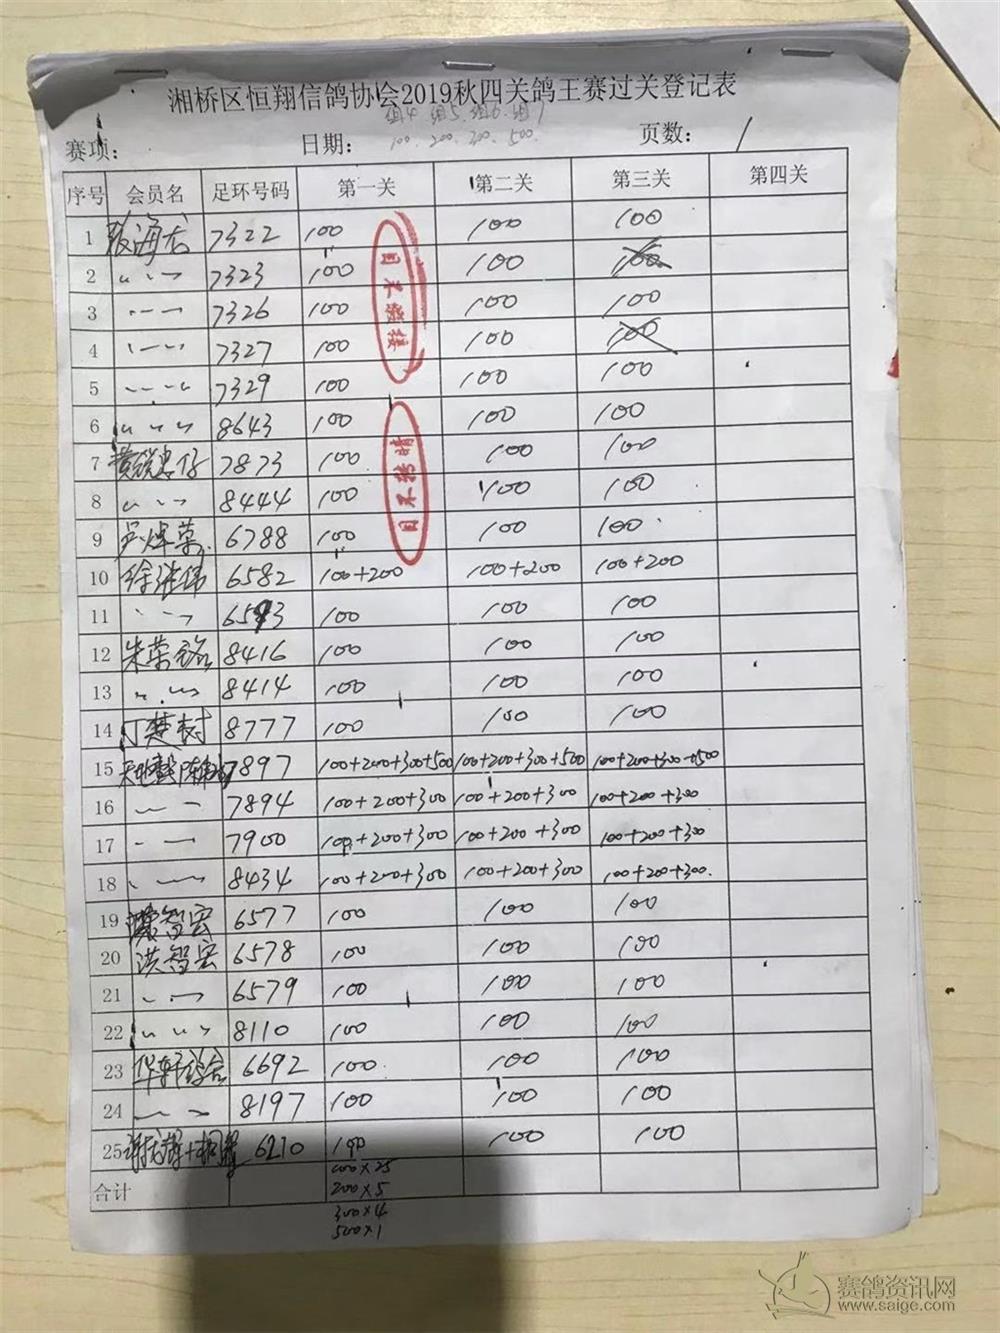 湘桥区恒翔信鸽协会2019秋四关鸽王赛过关登记表
组4 组5 组6 组7
赛项： 日期： 100 200 300 500 页数： 1
序号 会员名 足环号码 第一关 第二关 第三关 第四关
1 海 7322 100 100 100
2 〃 7323 100 100 100
3 〃 7326 100 100 100
4 〃 7327 100 100 100
5 〃 7329 100 100 100
6 〃 8643 100 100 100
7 黄 7873 100 100 100
8 〃 8444 100 100 100
9 6788 100 100 100
10 徐 伟 6582 100+200 100+200 100+200
11 〃 100 100 100
12 朱荣 8416 100 100 100
13 〃 8414 100 100 100
14 丁楚 8777 100 100 100
15 7897 100+200+300+500 100+200+300+500 100+200+300+500
16 〃 7894 100+200+300 100+200+300 100+200+300
17 〃 7900 100+200+300 100+200+300 100+200+300
18 〃 8434 100+200+300 100+200+300 100+200+300
19 智宏 6577 100 100 100
20 洪智宏 6578 100 100 100
21 〃 6579 100 100 100
22 〃 8110 100 100 100
23 华轩 6692 100 100 100
24 〃 8197 100 100 100
25 6210 100 100 100
合计 100×25
200×5
300×4
500×1
赛鸽资讯网
www.saige.com